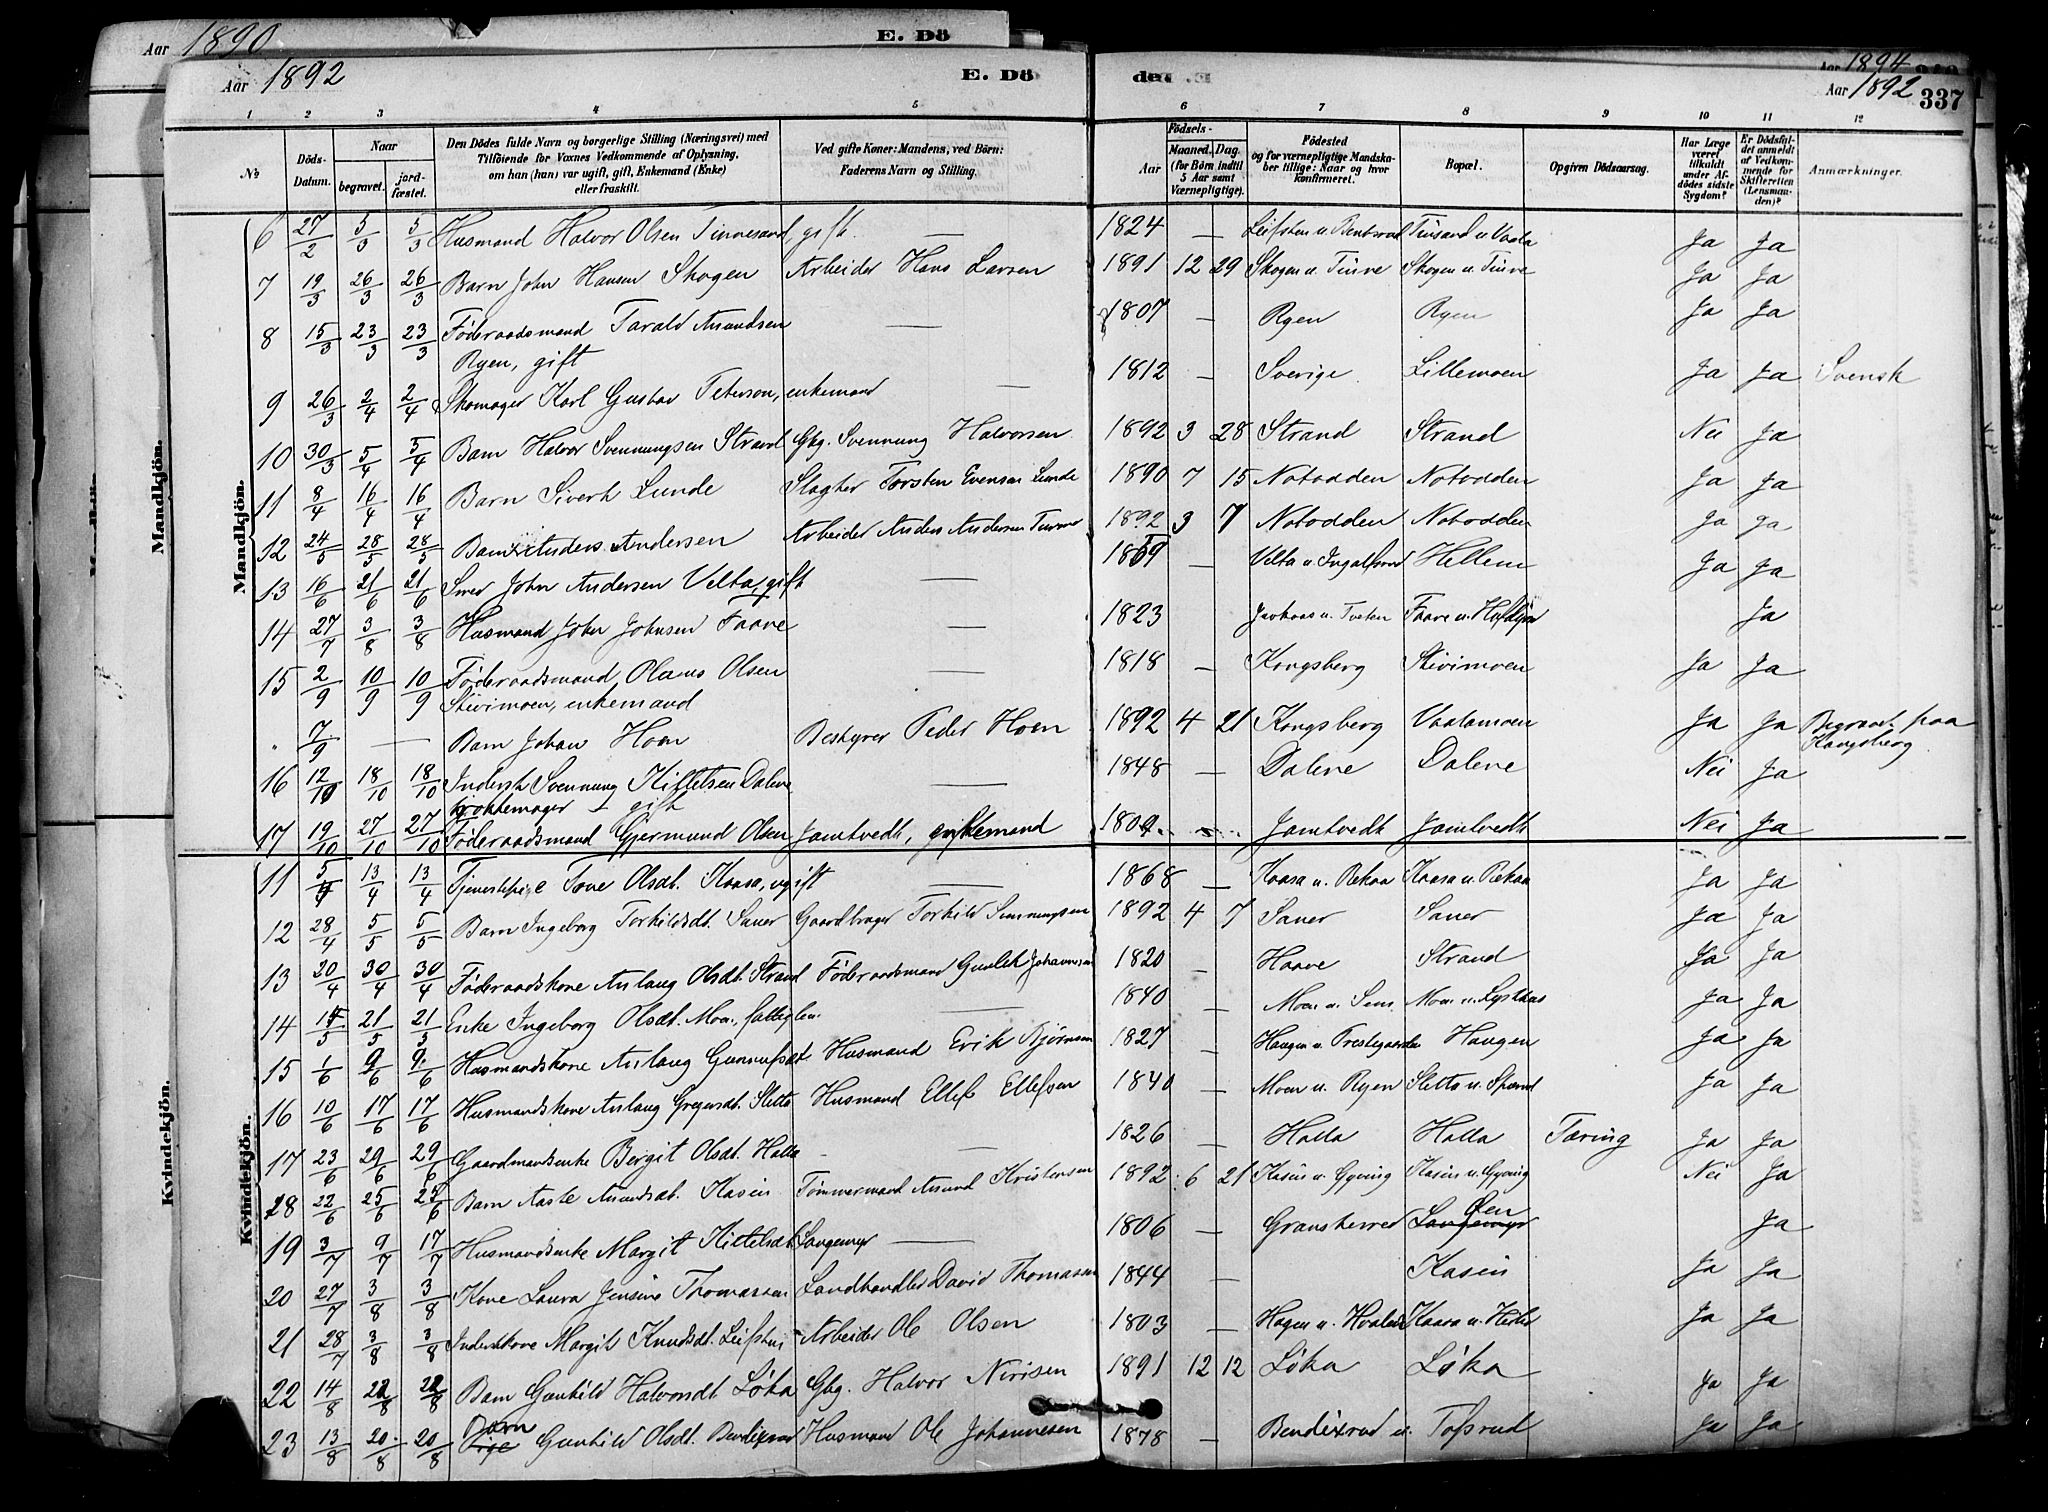 Aar 1890 E. Dö
Aar 1892 E. Dö
den
Aar 1894
Aar 1892 337
1 2 3 4 5 6 7 8 9 10 11 12
No
Döds-Datum.
Naar
begravet.
jord-fæstet.
Den Dödes fulde Navn og borgerlige Stilling (Næringsvei) med
Tilföiende for Voxnes Vedkommende af Oplysning,
om han (hun) var ugift, gift, Enkemand (Enke)
eller fraskilt.
Ved gifte Koner: Mandens, ved Börn:
Faderens Navn og Stilling.
Födsels-
Aar Maaned. Dag.
(for Börn indtil
5 Aar samt
Værnepligtige).
Födested
og for værnepligtige Mandska-
ber tillige: Naar og hvor
konfirmeret.
Bopæl.
Opgiven Dödsaarsag.
Har Læge
været
tilkaldt
under Af-
dödes sidste
Sygdom?
Er Dödsfal-
det anmeldt
af Vedkom-
mende for
Skifteretten
(Lensman-
den)?
Anmærkninger.
Mandkjön.
6 27/2 5/3 5/3 Husmand Halvor Olsen Tinnesand, gift. — 1824 — Leifsten u. Bentsrud Tinsand u. Vaala Ja Ja
7 19/3 26/3 26/3 Barn John Hansen Skogen Arbeider Hans Larsen 1891 12 29 Skogen u. Tinve Skogen u. Tinve Ja Ja
8 15/3 23/3 23/3 Föderaadsmand Tarald Amundsen — 1807 — Ryen Ryen Ja Ja
Ryen, gift
9 26/3 2/4 2/4 Skomager Karl Gustav Peterson, enkemand — 1812 — Sverige Lillemoen Ja Ja Svensk
10 30/3 5/4 5/4 Barn Halvor Svennungsen Strand Gbg. Svennung Halvorsen 1892 3 28 Strand Strand Nei Ja
11 8/4 16/4 16/4 Barn Sivert Lunde Slagter Torsten Evensen Lunde 1890 7 15 Notodden Notodden Ja Ja
12 24/5 28/5 28/5 Barn Anders Andersen Arbeider Anders Andersen 1892 3 7 Notodden Notodden Ja Ja
13 16/6 21/6 21/6 Smed John Andersen Velta, gift — — Velta u. Ingolfsrud Ja Ja
14 27/7 3/8 3/8 Husmand John Johnsen Faave — 1823 u. Tveten Faave u. Ja
15 2/9 10/9 10/9 Föderaadsmand Olaus Olsen — 1818 — Kongsberg Stivimoen Ja Ja
Stivimoen, enkemand
" 7/9 — Barn Johan Hoen Bestyrer Peder Hoen 1892 4 21 Kongsberg Vaalamoen Ja Ja Begravet paa
Kongsberg
16 12/10 18/10 18/10 Inderst Svennung Kittelsen Dalene — 1848 — Dalene Dalene Nei Ja
gift
17 19/10 27/10 27/10 Föderaadsmand Gjermund Olsen Jamtvedt, enkemand 1809 Jamtvedt Jamtvedt Nei Ja
Kvindekjön.
11 5/4 13/4 13/4 Tjenestepige Tone Olsdt. Kaasa, ugift — 1868 — Kaasa u. Rekaa Kaasa u. Rekaa Ja Ja
12 28/4 5/5 5/5 Barn Ingeborg Torkildsdt. Sauer Gaardbruger Torkild 1892 4 7 Sauer Sauer Ja Ja
13 20/4 30/4 30/4 Föderaadskone Aslaug Olsdt. Strand Föderaadsmand Gunlek Johannesen 1820 — Haave Strand Ja Ja
14 /5 21/5 21/5 Enke Ingeborg Olsdt. Moen, fattiglem. — 1840 — Moen u. Sem Moen u. Lysthus Ja Ja
15 1/6 9/6 9/6 Husmandskone Aslaug Gunnufsdt Husmand Erik Bjørnsen 1827 — Haugen u. Prestegaarden Haugen Ja Ja
16 10/6 17/6 17/6 Husmandskone Aslaug Gregersdt. Sletta Husmand Ellef Ellefsen 1840 — Moen u. Ryen Sletta u. Ja Ja
17 23/6 29/6 29/6 Gaardmandsenke Birgit Olsdt. Halla — 1826 — Halla Halla Tæring Ja Ja
28 22/6 25/6 25/6 Barn Aaste Amundsdt. Kasin Tömmermand Amund Kristensen 1892 6 21 Kasin u. Kasin u. Nei Ja
19 3/7 9/7 17/7 Husmandsenke Margit Kittelsdt. Langemyr — 1806 — Gransherred Langemyr Øen Ja
20 27/7 3/8 3/8 Kone Laura Jensine Thomassen Landhandler David Thomasen 1844 — Kasin Ja Ja
21 28/7 3/8 3/8 Inderstkone Margit Knudsdt. Arbeider Ole Olsen 1803 — Hagen u. Kaasa u. Ja Ja
22 14/8 22/8 22/8 Barn Gunhild Halvorsdt Løka Gbg. Halvor Nirisen 1891 12 12 Løka Løka Ja Ja
23 13/8 20/8 20/8 Barn Gunhild Olsdt. Bendixrud Husmand Ole Johannesen 1878 — Bendixrud u. Tofsrud Ja Ja
Mandkjön.
Kvindekjön.